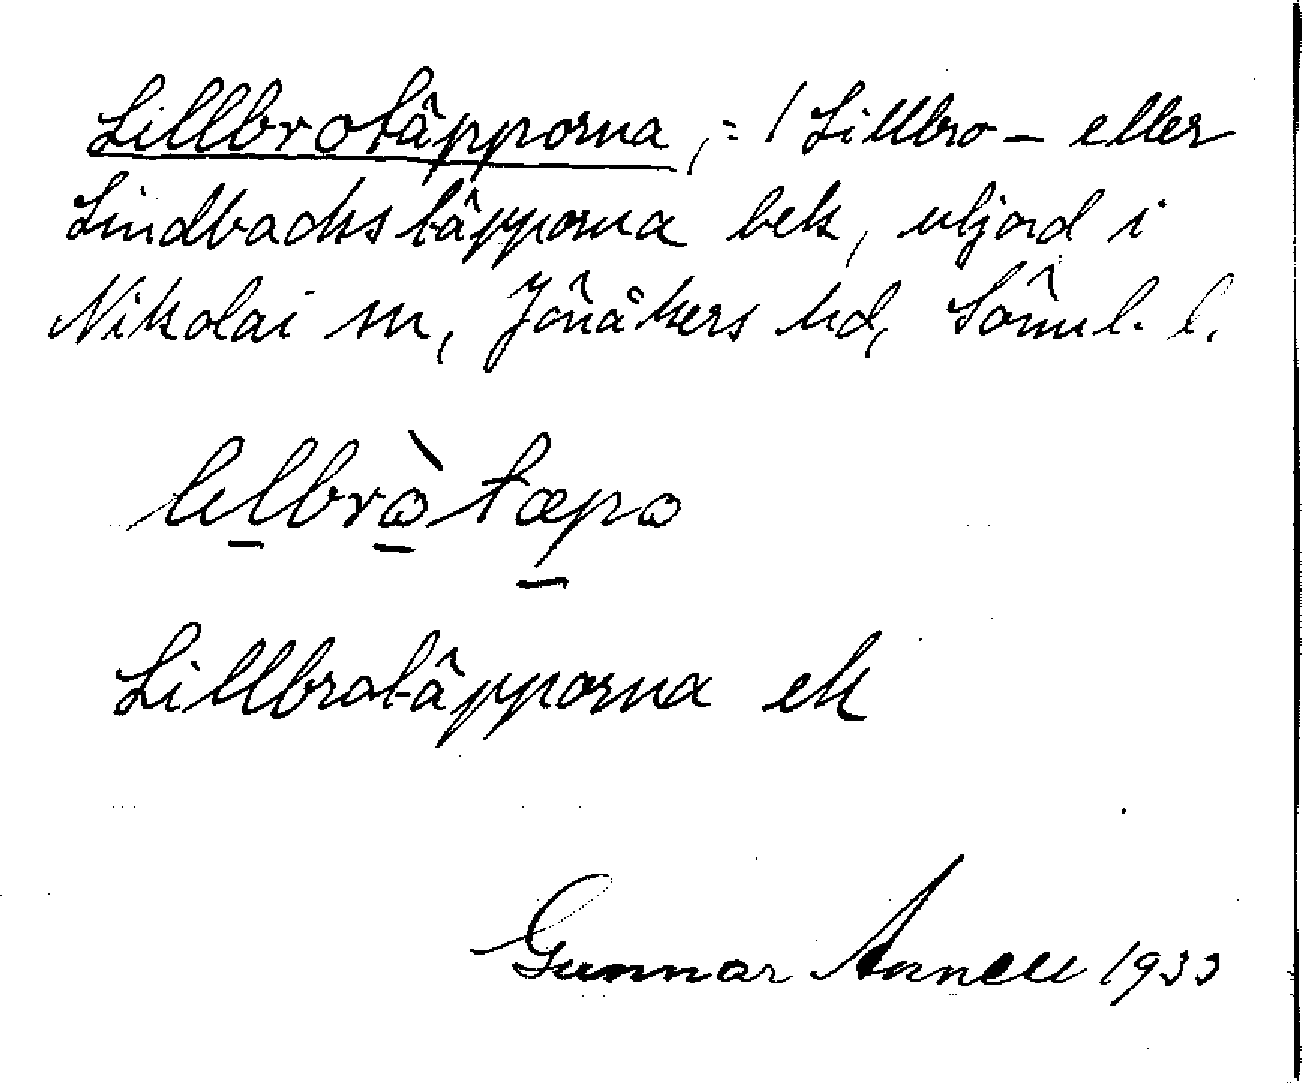 Lillbrotäpporna, = / Lillbro- eller
Lindbacks täpporna bek, utjord i
Nikolai sn, Jönåkers hd, Sörml. l.
lɩlbrὼtæpɷ
Lillbrotäpporna ek
Gunnar Annell 1933